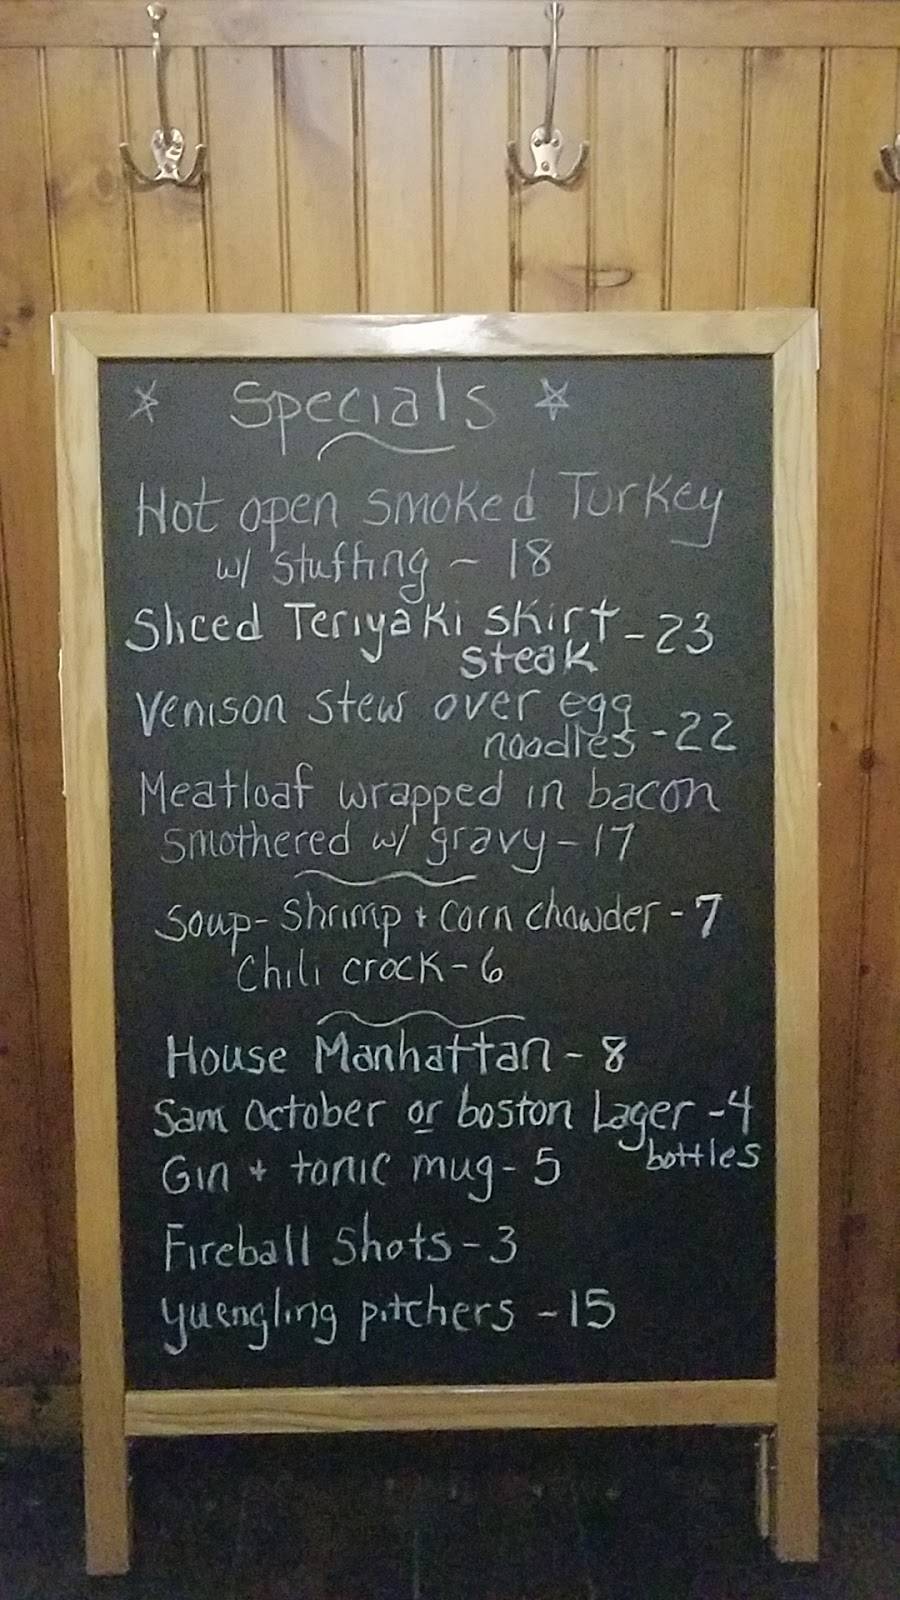 Specials
Hot open smoked Turkey
w/ stuffing ~ 18
Sliced Teriyaki skirt - 23
steak
Venison stew over egg
noodles - 22
Meatloaf wrapped in bacon
smothered w/ gravy - 17
Soup - Shrimp + corn chowder - 7
Chili crock - 6
House Manhattan - 8
Sam October or boston Lager - 4
bottles
Gin + tonic mug - 5
Fireball Shots - 3
yuengling pitchers - 15